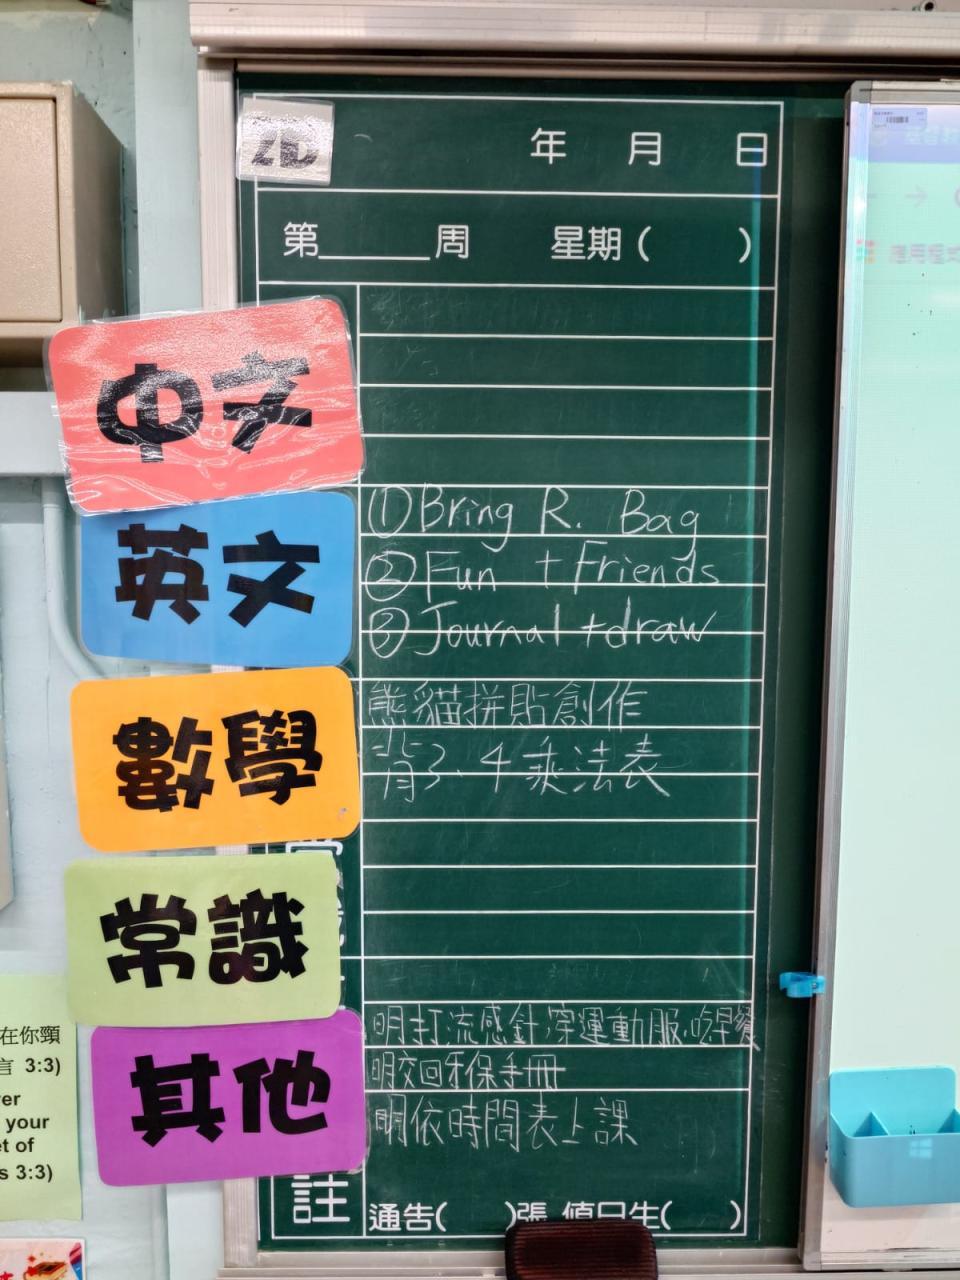 2D
年 月 日
第 周 星期( )
中文
英文
①Bring R. Bag
②Fun + Friends
③Journal +draw
數學
熊貓拼貼創作
背3、4乘法表
常識
其他
明打流感針,穿運動服,吃早餐
明交回牙保手冊
明依時間表上課
註
通告( )張 值日生( )
在你頸
3:3)
your
et of
s 3:3)